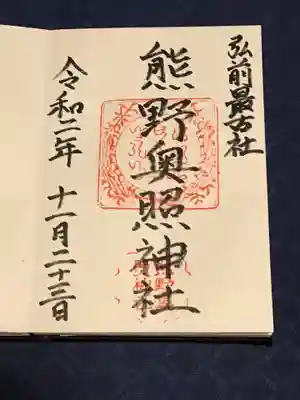 弘前最古社
熊野奥照神社
令和二年 十一月二十三日